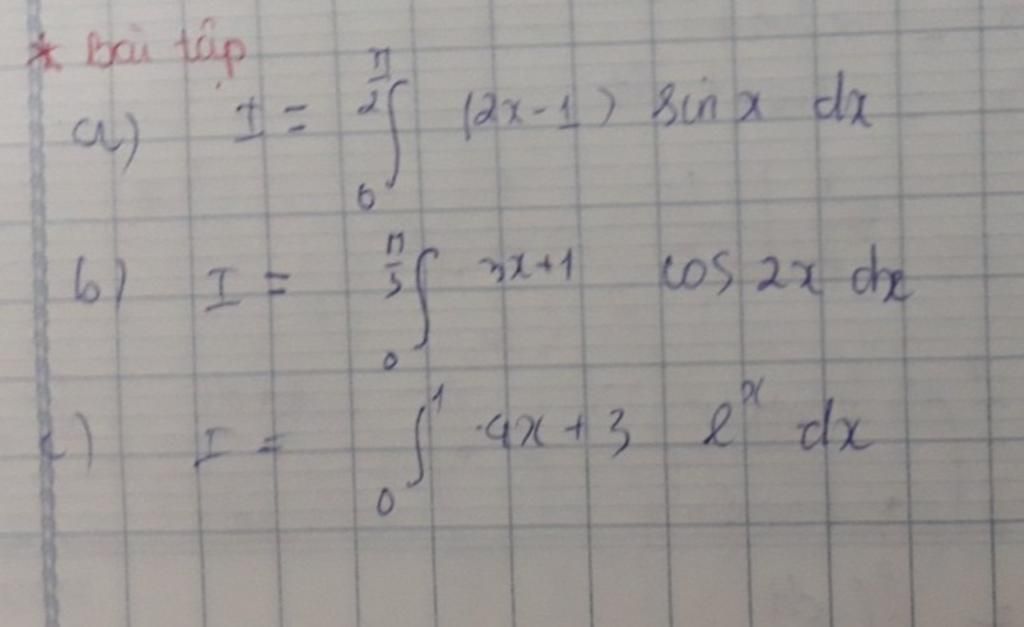 * Bài tập
a) I = ∫₀^{π/2} (2x-1) sin x dx
b) I = ∫₀^{π/3} 3x+1 cos 2x dx
c) I = ∫₀^1 4x+3 e^x dx